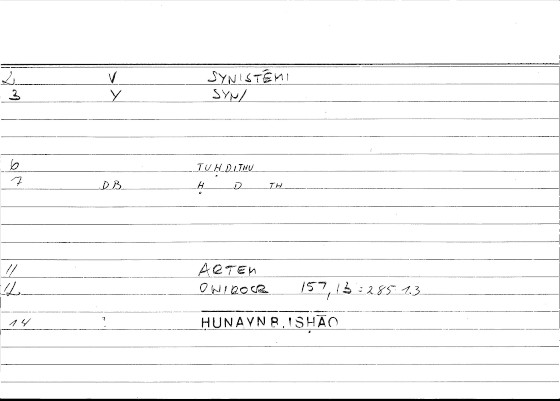 2 V SYNISTĒMI
3 Y SYN/
6 TUḤDITHU
7 DB Ḥ D TH
11 ARTEM
12 ONIROCR 157,13 : 285 13
14 ! HUNAYN B. ISḤĀQ